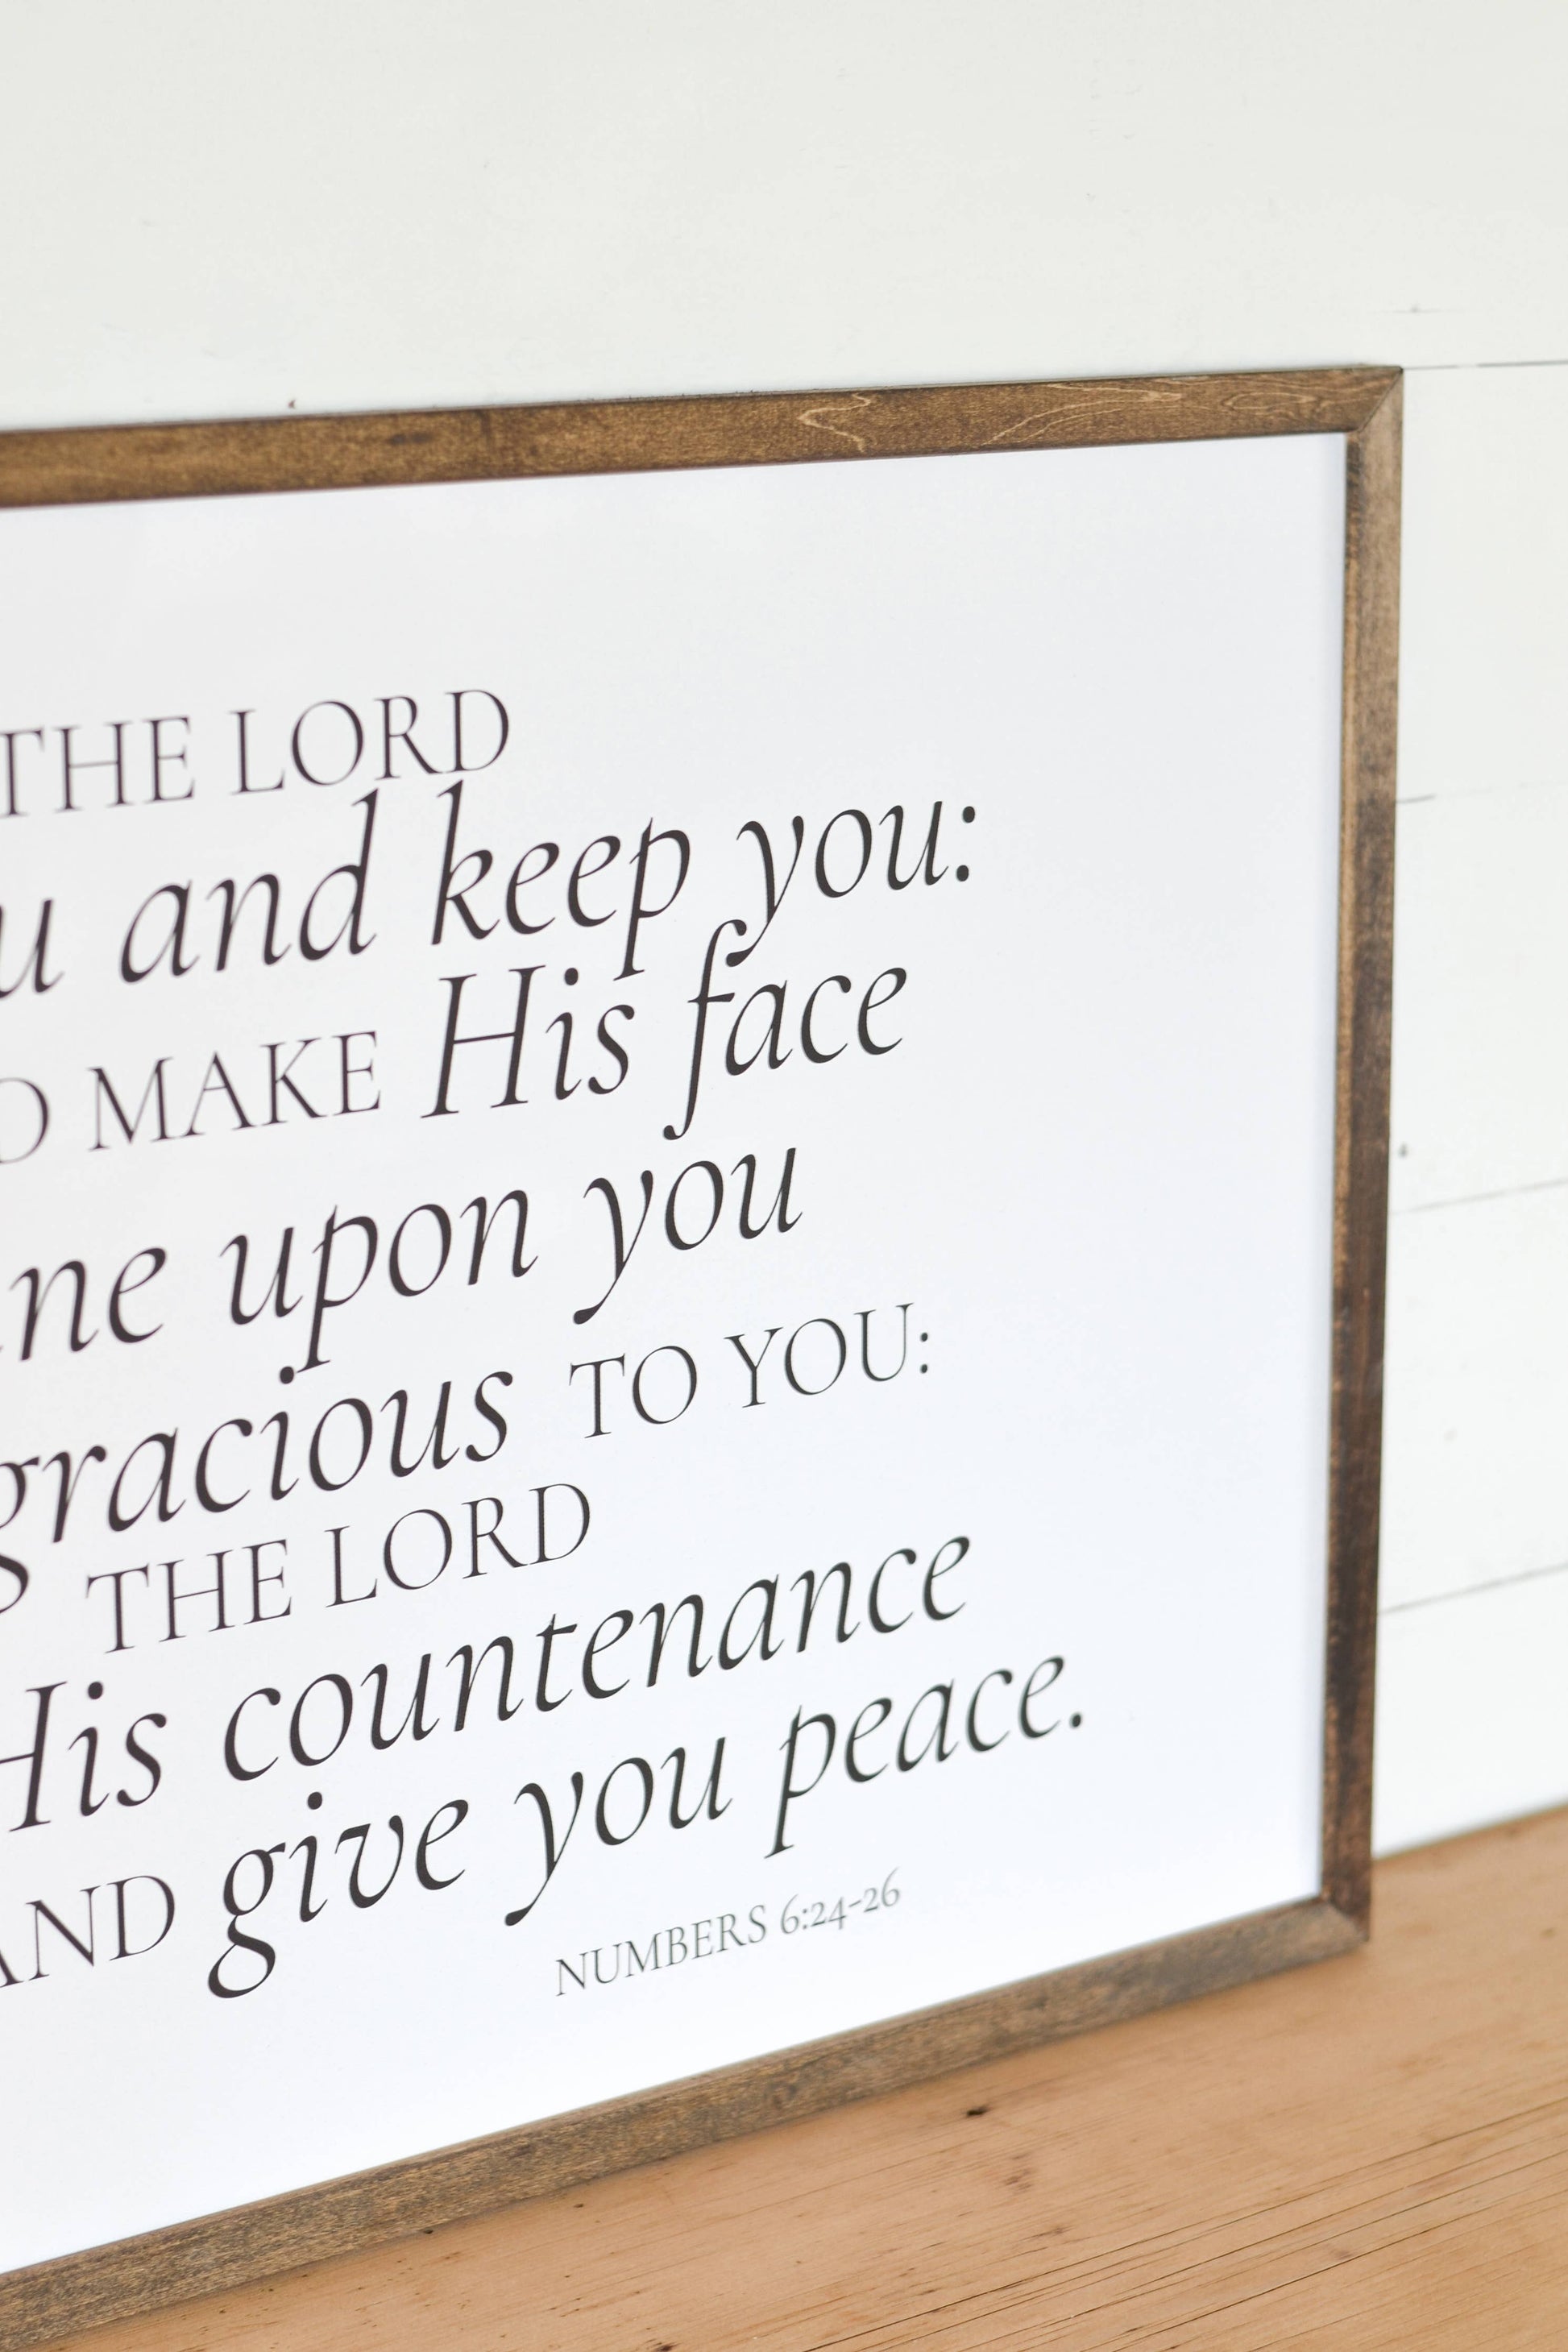 THE LORD
and keep you:
MAKE His face
upon you
gracious TO YOU:
THE LORD
His countenance
AND give you peace.
NUMBERS 6:24-26